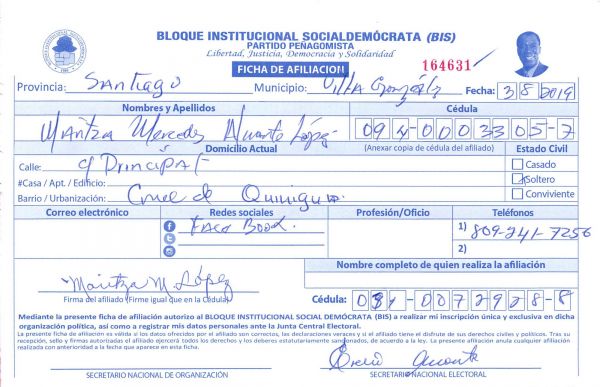 BLOQUE INSTITUCIONAL SOCIALDEMÓCRATA (BIS)
PARTIDO PEÑAGOMISTA
Libertad, Justicia, Democracia y Solidaridad
FICHA DE AFILIACION 164631
Provincia: Santiago Municipio: Villa González Fecha: 3 8 2019
Nombres y Apellidos Cédula
Maritza Mercedes López 094-0003305-7
Domicilio Actual (Anexar copia de cédula del afiliado) Estado Civil
Calle: C/ Principal Casado
#Casa / Apt. / Edificio: Soltero
Barrio / Urbanización: Cruce de Conviviente
Correo electrónico Redes sociales Profesión/Oficio Teléfonos
Face Book. 1) 809-241-7256
2)
Nombre completo de quien realiza la afiliación
Maritza M. López
Firma del afiliado (Firme igual que en la Cédula) Cédula: 031-0072928-8
Mediante la presente ficha de afiliación autorizo al BLOQUE INSTITUCIONAL SOCIAL DEMÓCRATA (BIS) a realizar mi inscripción única y exclusiva en dicha
organización política, así como a registrar mis datos personales ante la Junta Central Electoral.
La presente ficha de afiliación es válida si los datos ofrecidos por el afiliado son correctos, las declaraciones veraces y si el afiliado tiene el disfrute de sus derechos civiles y políticos. Tras su
recepción, sello y firmas autorizadas el afiliado ejercerá todos los derechos y los deberes estatutariamente sancionados, de acuerdo a la ley. La presente afiliación anula cualquier afiliación
realizada con anterioridad a la fecha que aparece en esta ficha.
SECRETARIO NACIONAL DE ORGANIZACIÓN SECRETARIO NACIONAL ELECTORAL